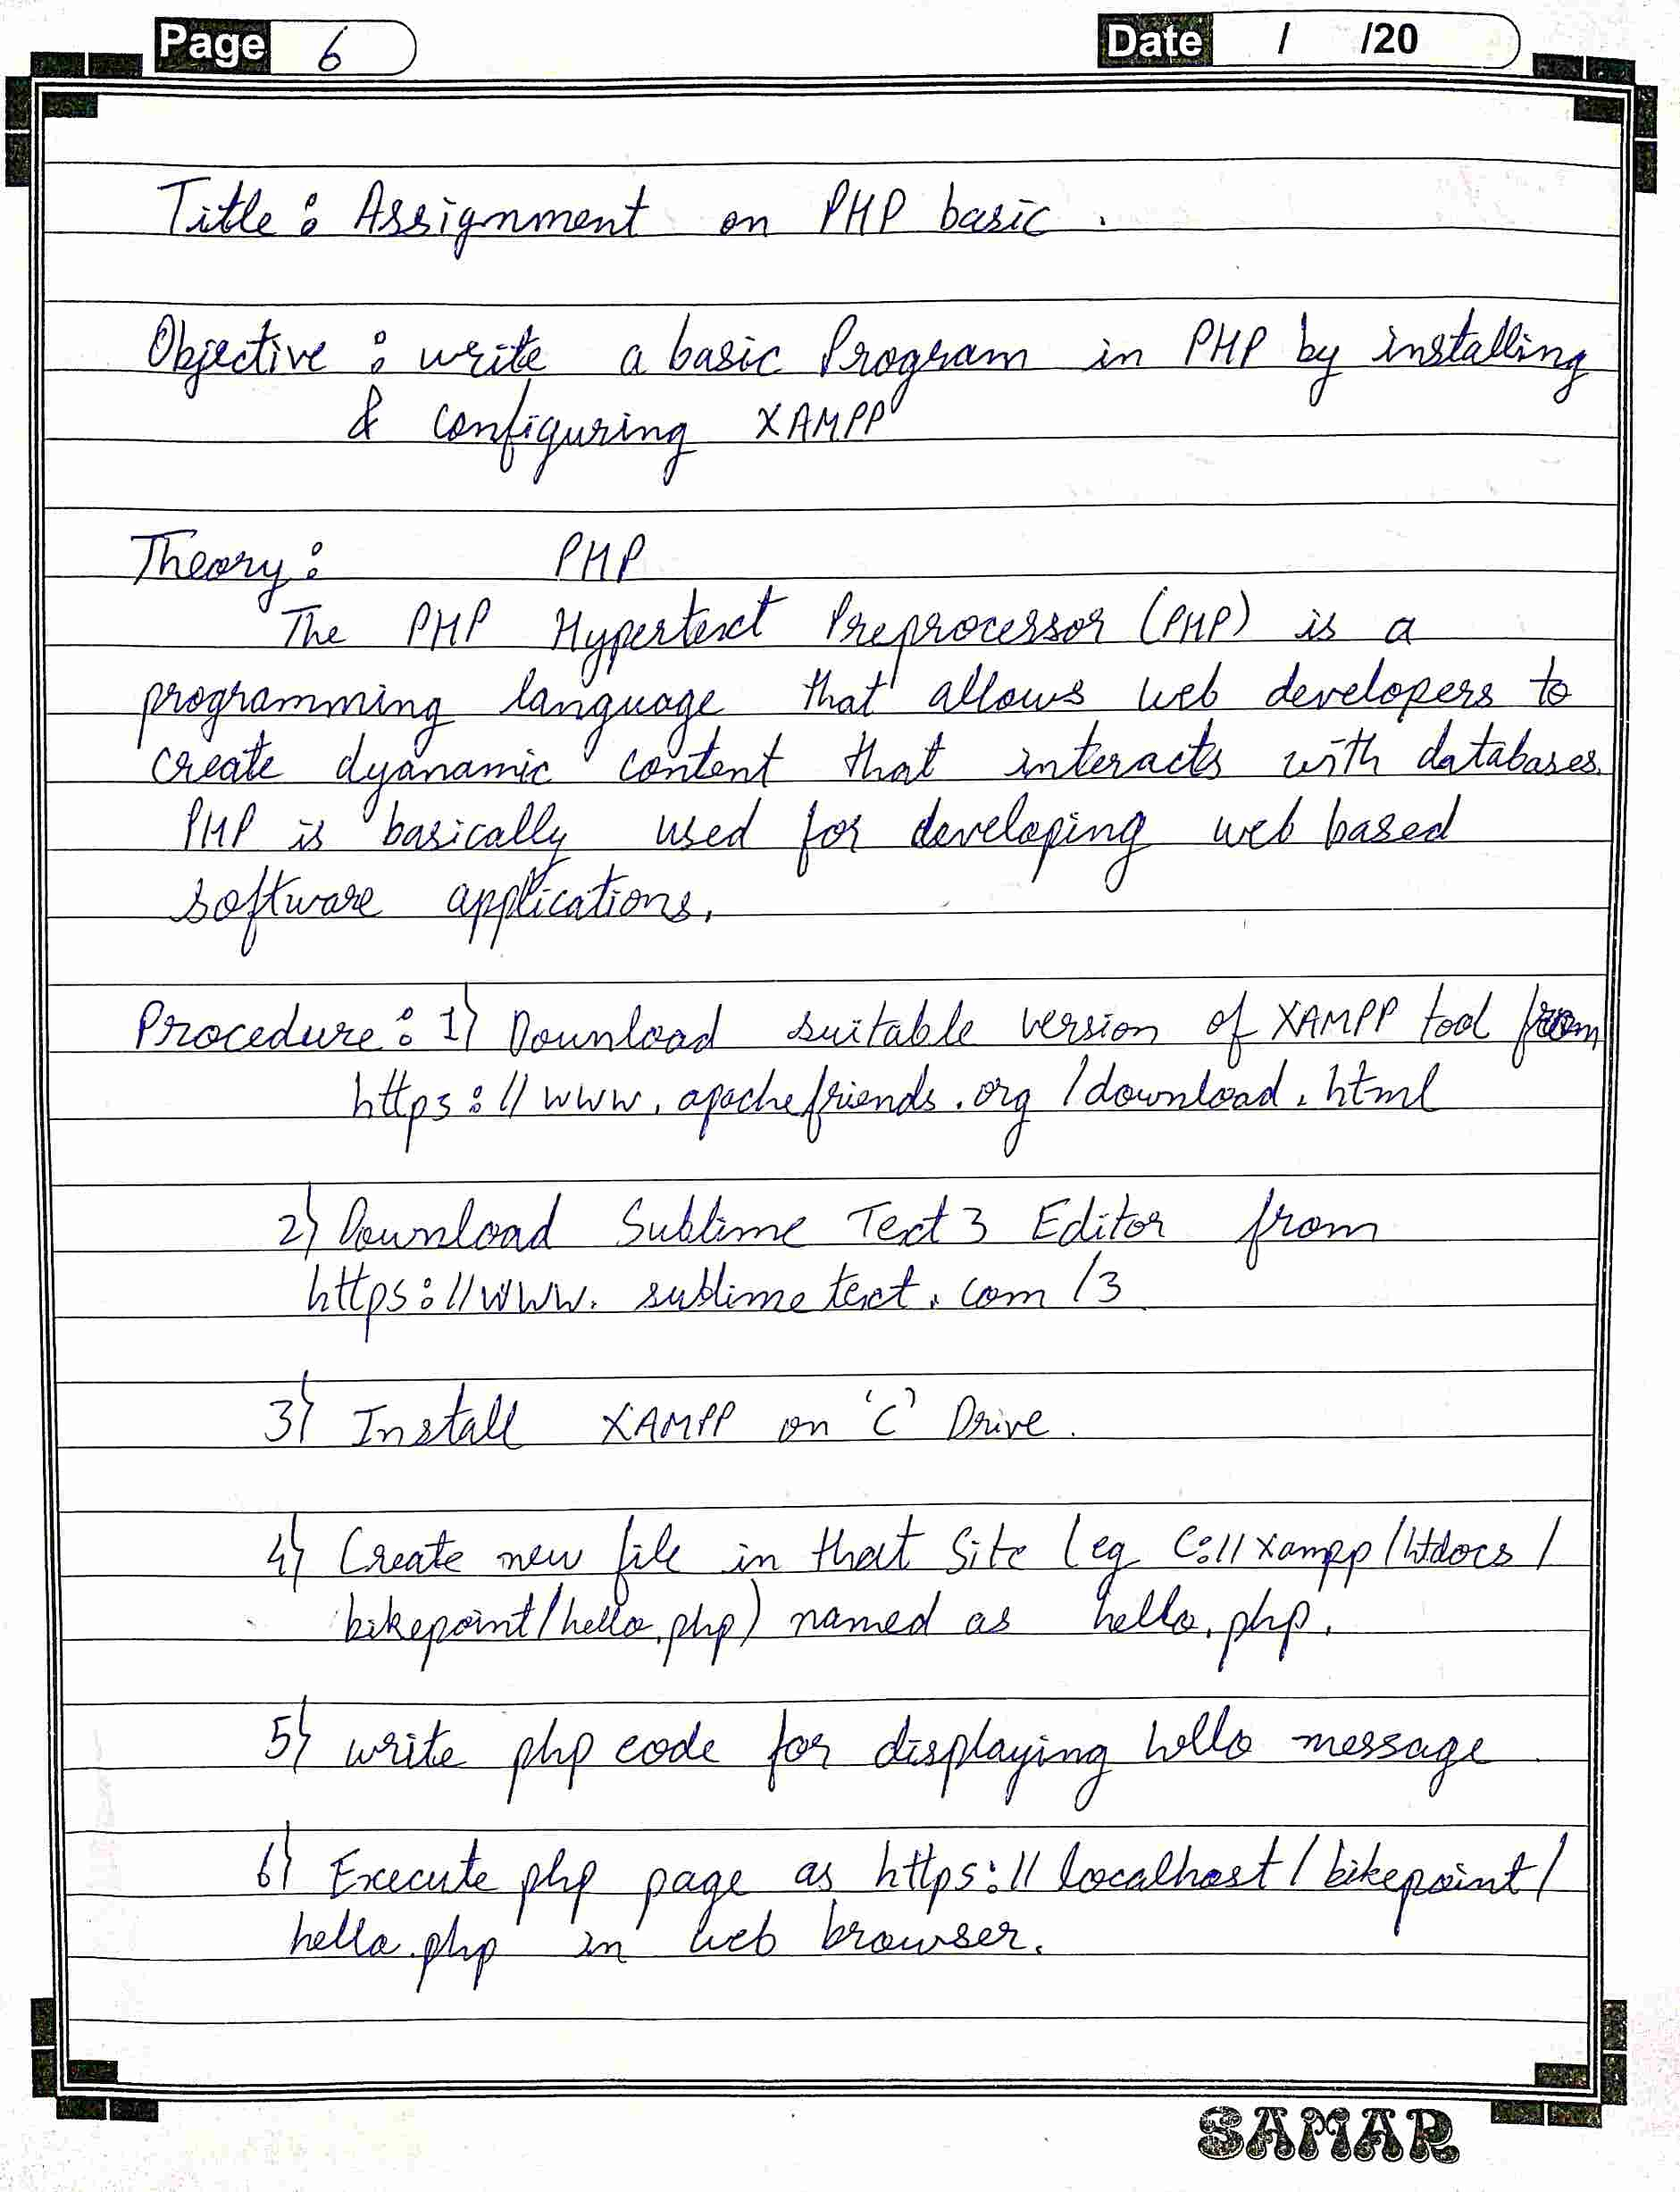 Page 6
Date / /20
Title : Assignment on PHP basic .
Objective : write a basic Program in PHP by installing
& configuring XAMPP
Theory : PHP
The PHP Hypertext Preprocessor (PHP) is a
programming language that allows web developers to
create dyanamic content that interacts with databases.
PHP is basically used for developing web based
software applications.
Procedure : 1) Download suitable version of XAMPP tool from
https://www.apachefriends.org/download.html
2) Download Sublime Text 3 Editor from
https://www.sublimetext.com/3
3) Install XAMPP on 'C' Drive.
4) Create new file in that Site (eg C://xampp/htdocs/
bikepoint/hello.php) named as hello.php.
5) write php code for displaying hello message
6) Execute php page as https://localhost/bikepoint/
hello.php in web browser.
SAMAR